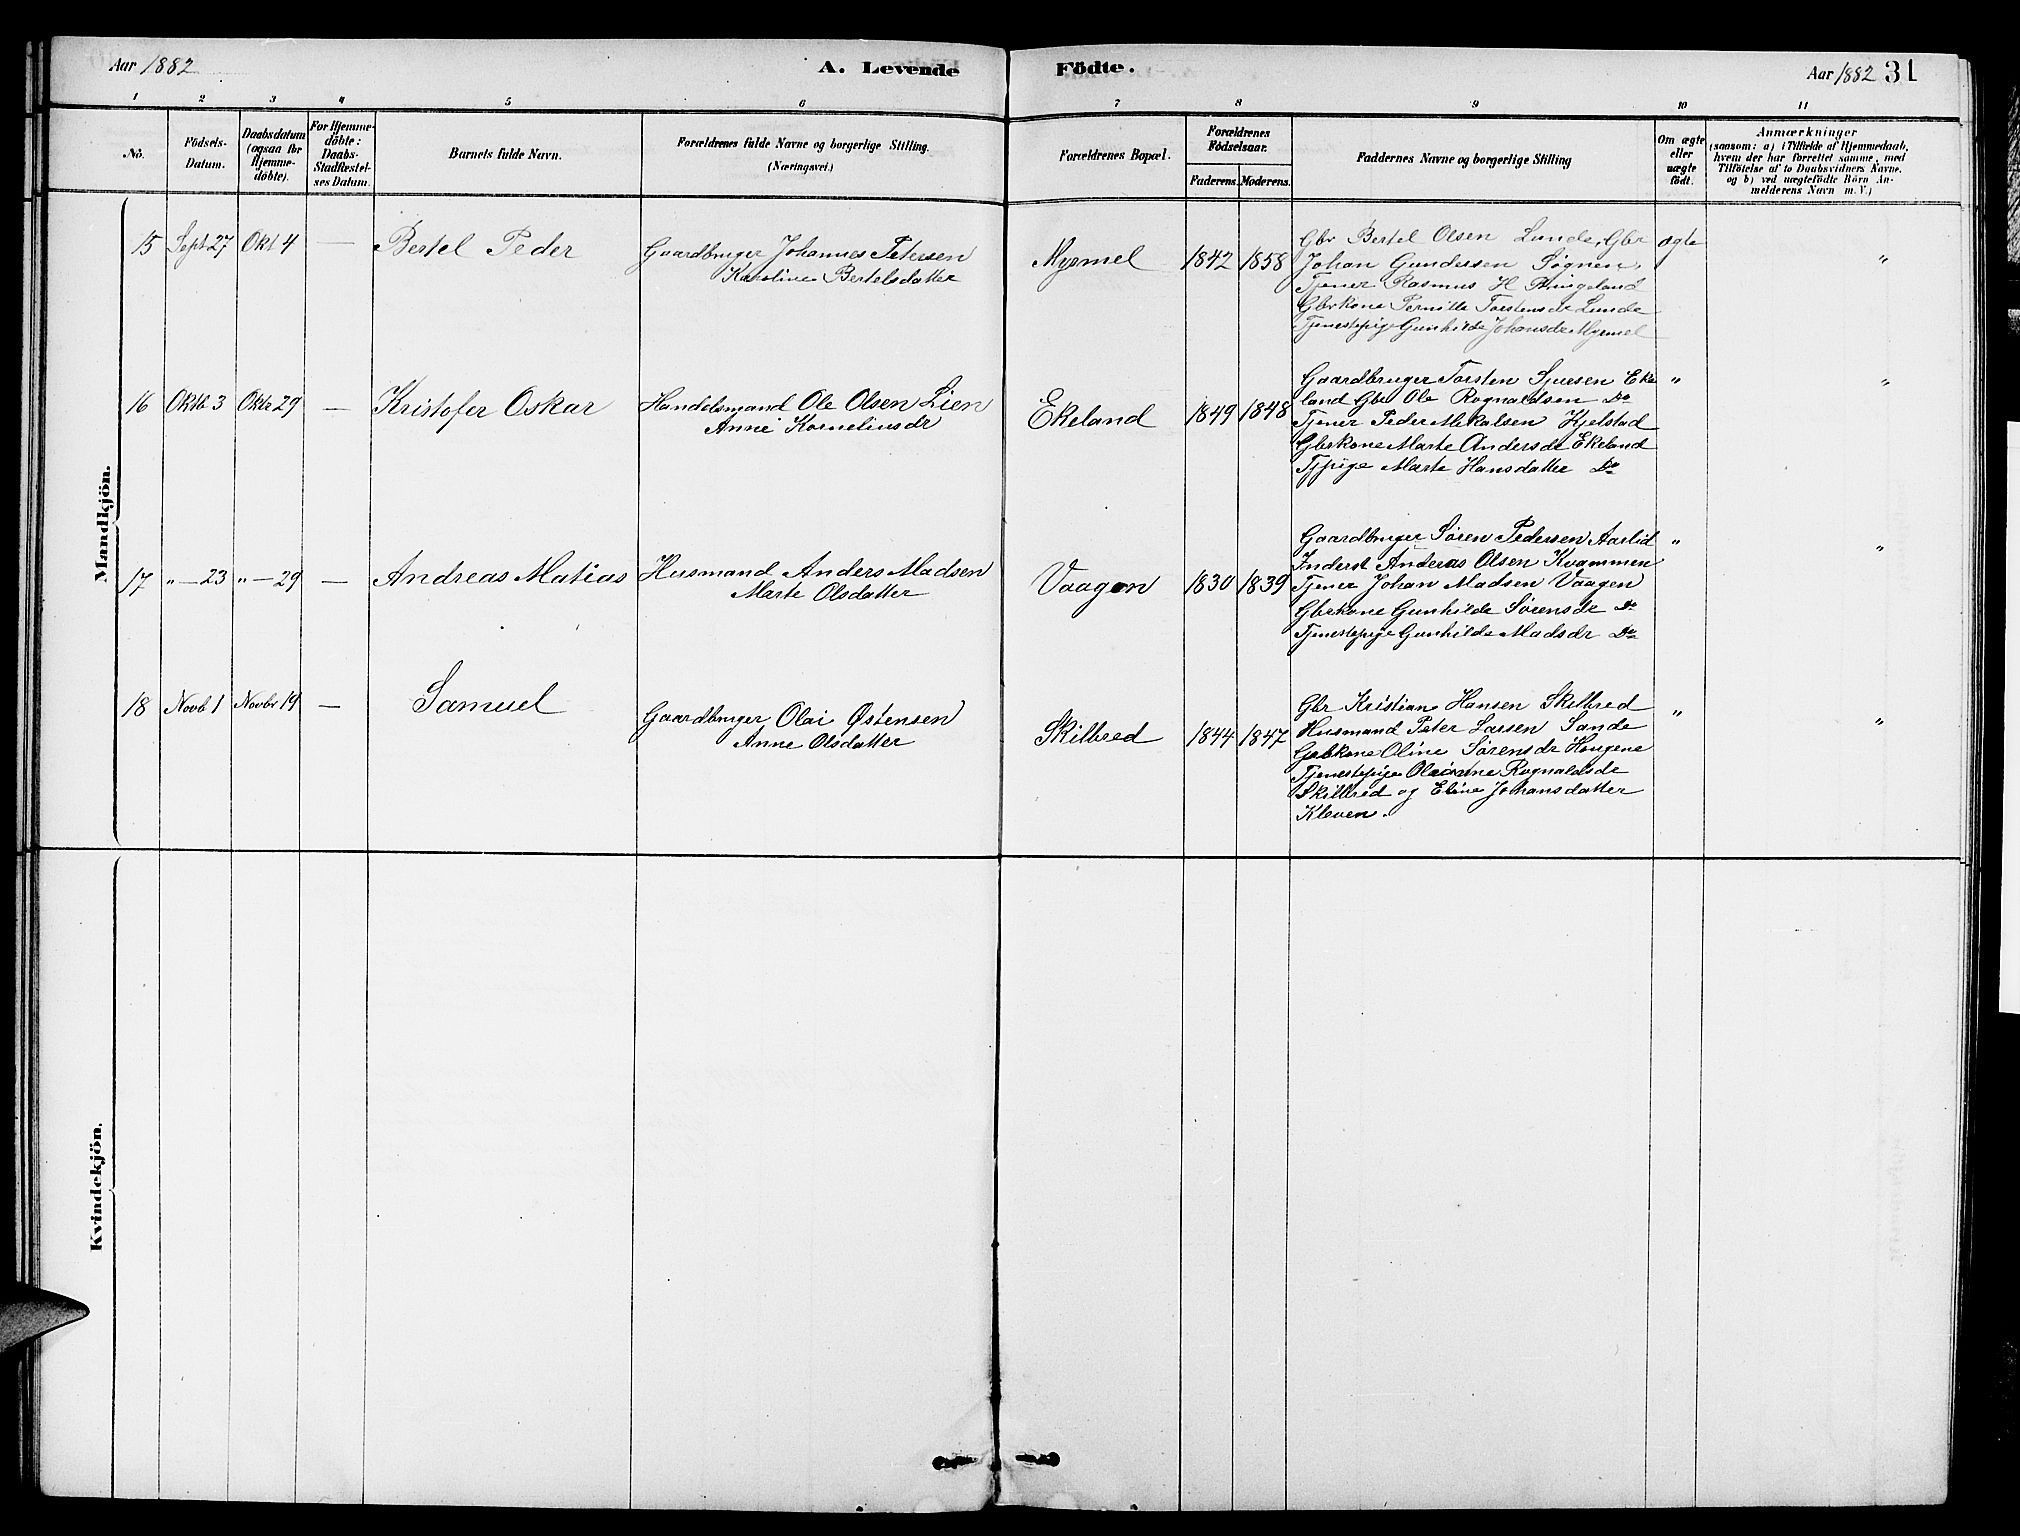 Aar 1882
A. Levende Födte.
Aar 1882
31
1 2 3 4 5 6 7 8 9 10 11
No.
Födsels-
Datum.
Daabsdatum
(ogsaa for
Hjemme-
döbte).
For Hjemme-
döbte:
Daabs-
Stadfæstel-
ses Datum.
Barnets fulde Navn.
Forældrenes fulde Navne og borgerlige Stilling.
(Næringsvei.)
Forældrenes Bopæl.
Forældrenes
Födselsaar.
Faderens. Moderens.
Faddernes Navne og borgerlige Stilling
Om ægte
eller
uægte
födt.
Anmærkninger
(saasom: a) i Tilfælde af Hjemmedaab,
hvem der har forrettet samme, med
Tilföielse af to Daabsvidners Navne.
og b) ved uægtefödte Börn An-
melderens Navn m. V.)
Mandkjön.
15 Sept 27 Okt 4 — Bestel Peder
Gaardbruger Johannes Petersen
Karoline Bertelsdatter
Myrmel 1842 1858
Gbr Bertel Olsen Lunde, Gbr
Johan Gundersen Søgnen,
Tjener Rasmus H
Gbrkone Pernille Torstensdr Lunde
Tjenestepige Gunhilde Johansdr Myrmel
ægte "
16 Oktb 3 Oktbr 29 — Kristofer Oskar
Handelsmand Ole Olsen Lien
Anne Korneliusdr
Ekeland 1849 1848
Gaardbruger Torsten Sjursen Eke
land Gbr Ole Rognaldsen Do
Tjener Peder Mikalsen Kjelstad
Gbrkone Marte Andersdr Ekeland
Tjpige Marte Hansdatter Do
" "
17 " — 23 " — 29 — Andreas Matias
Husmand Anders Madsen
Marte Olsdatter
Vaagen 1830 1839
Gaardbruger Søren Pedersen Aarlid
Inderst Andreas Olsen Kvammen
Tjener Johan Madsen Vaagen
Gbrkone Gunhilde Sørensdr Do
Tjenestepige Gunhilde Madsdr Do
" "
18 Novb 1 Novbr 19 — Samuel
Gaardbruger Olai Østensen
Anne Olsdatter
Skilbred 1844 1847
Gbr Kristian Hansen Skilbred
Husmand Peter Larsen Sande
Gbrkone Oline Sørensdr Hougene
Tjenestepige Rognaldsdr
Skilbred og Eline Johansdatter
Kleven.
" "
Kvindekjön.